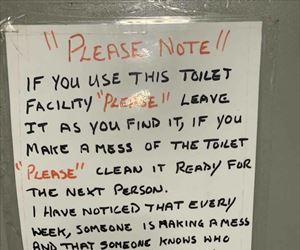 "PLEASE NOTE"
IF YOU USE THIS TOILET
FACILITY "PLEASE" LEAVE
IT AS YOU FIND IT, IF YOU
MAKE A MESS OF THE TOILET
"PLEASE" CLEAN IT READY FOR
THE NEXT PERSON.
I HAVE NOTICED THAT EVERY
WEEK, SOMEONE IS MAKING A MESS
AND THAT SOMEONE KNOWS WHO